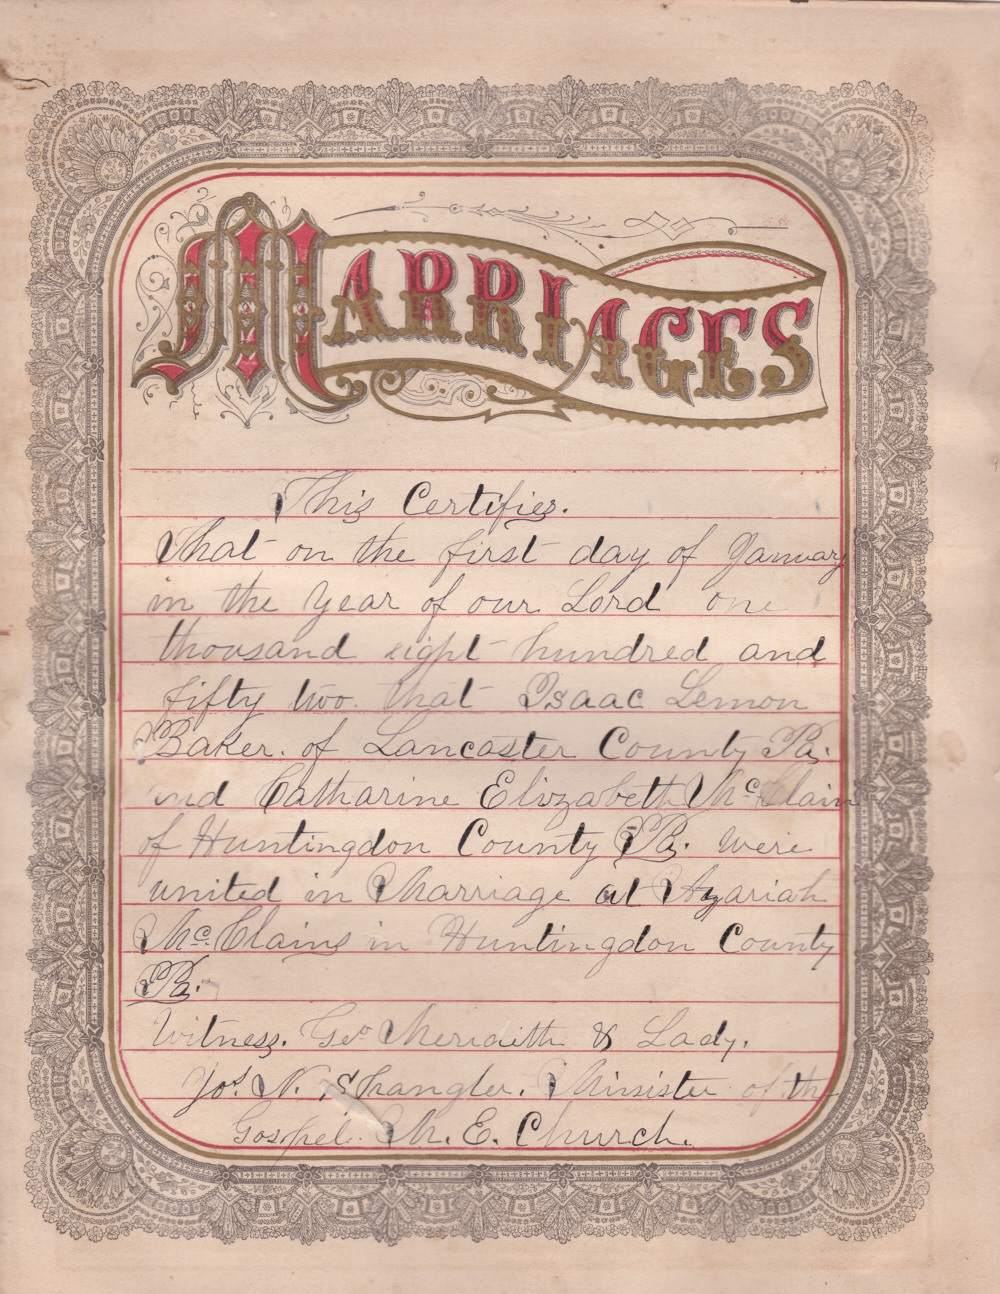 MARRIAGES
This Certifies.
That on the first day of January
in the year of our Lord one
thousand eight hundred and
fifty two. that Isaac Lemon
Baker. of Lancaster County Pa.
and Catharine Elizabeth McClain
of Huntingdon County Pa. were
united in Marriage at Azariah
Mc. Clains in Huntingdon County
Pa.
Witness. Geo Meridith & Lady.
Jos. N. Spangler. Minister of the
Gospel. M. E. Church.